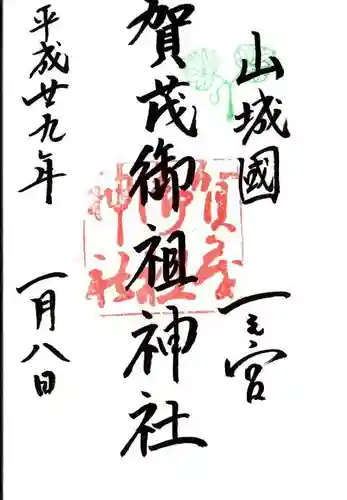 山城國 一之宮
賀茂御祖神社
平成廿九年 一月八日
賀茂御祖神社